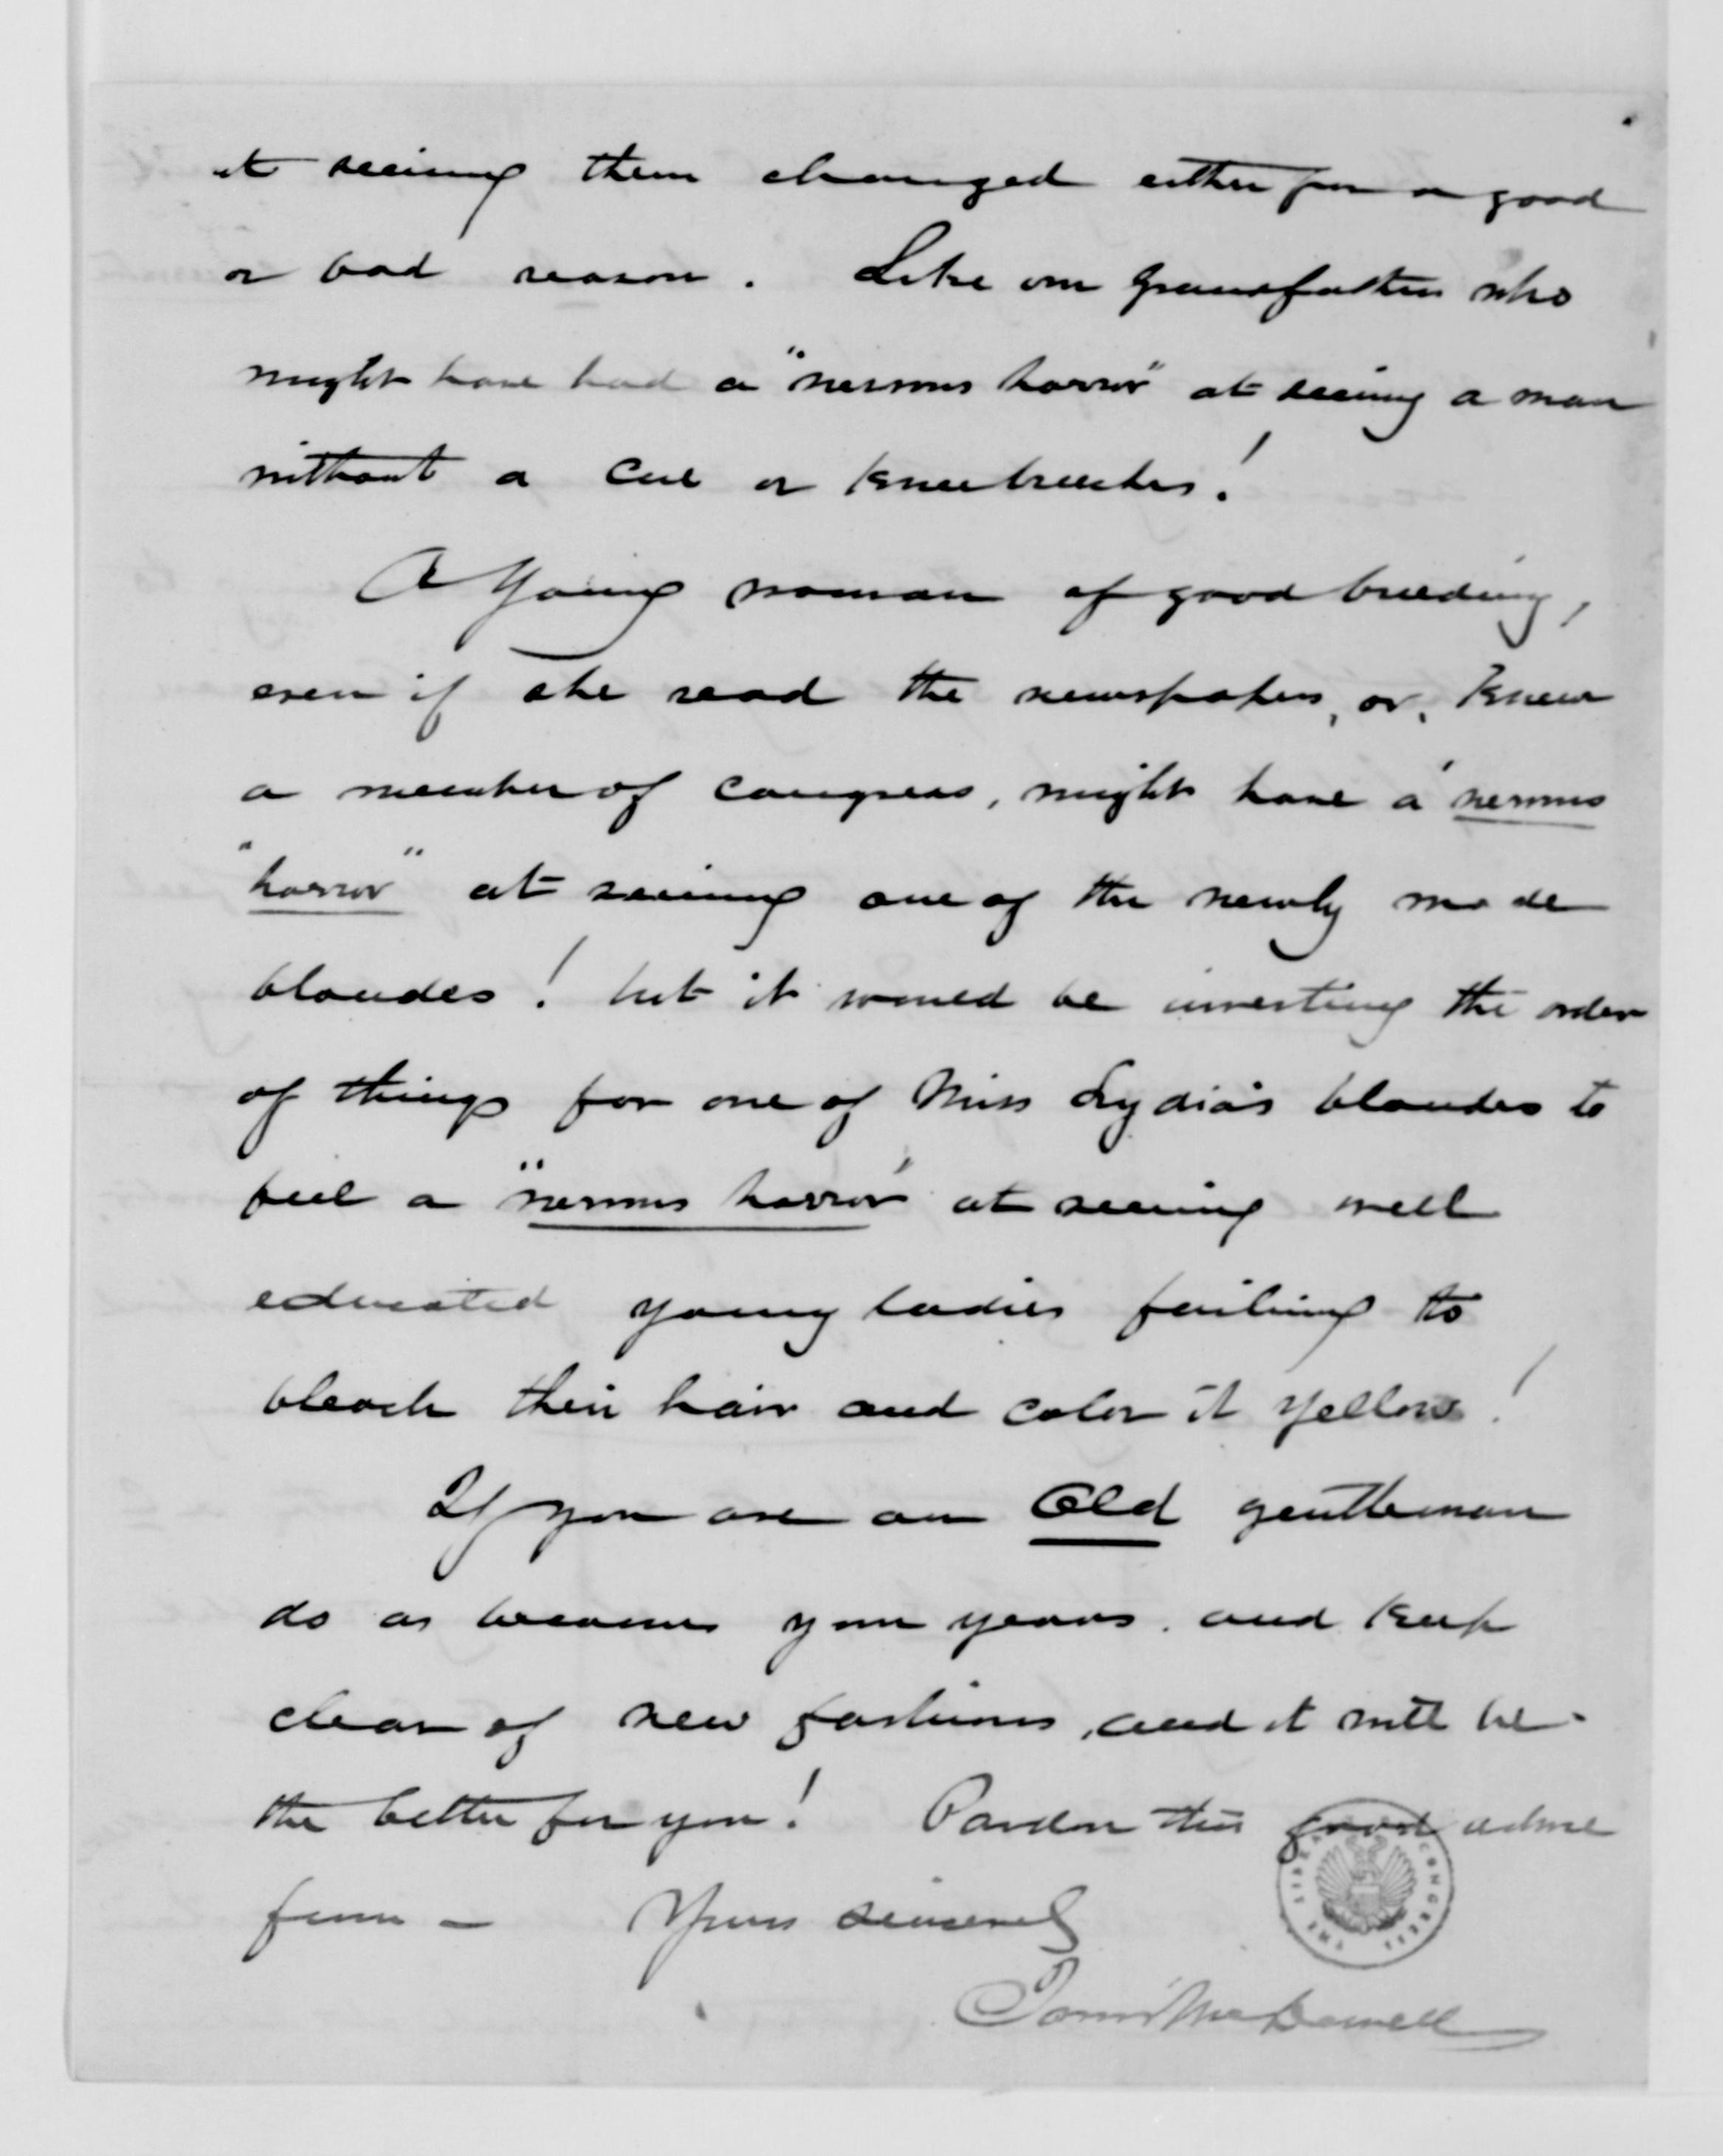 at seeing them changed either for a good
or bad reason. Like our Grandfathers who
might have had a "nervous horror" at seeing a man
without a Cue or Kneebreeches!
A Young woman of good breeding,
even if she read the newspapers, or, Knew
a member of Congress, might have a "nervous
"horror" at seeing one of the newly made
blondes! but it would be inverting the order
of things for one of Miss Lydia's blondes to
feel a "nervous horror" at seeing well
educated young ladies failing to
bleach their hair and color it yellow!
If you are an Old gentleman
do as becomes your years. and Keep
clear of new fashions, and it will be
the better for you! Pardon this good advice
from – Yours sincerely
McDowell
THE LIBRARY OF CONGRESS